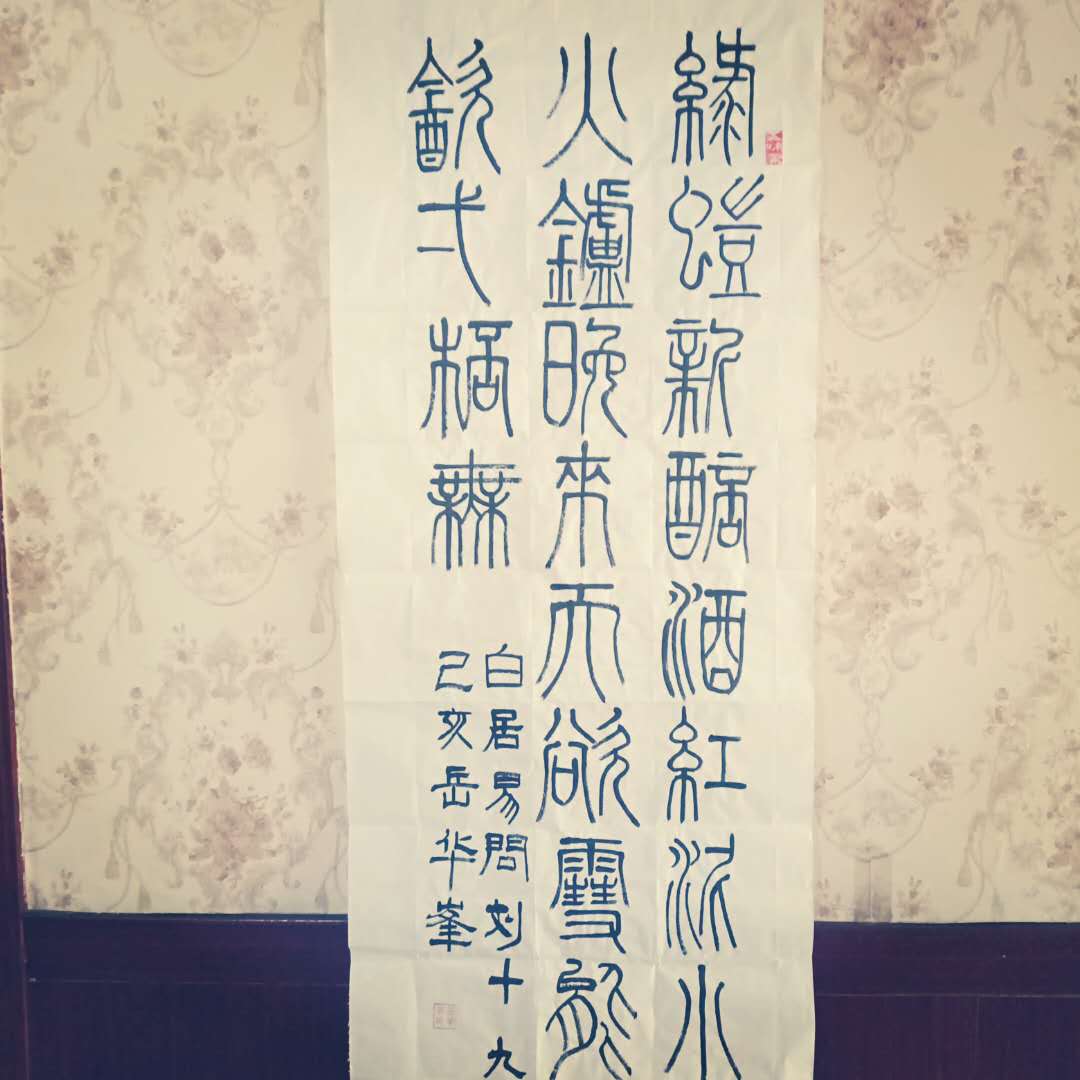 綠螘新醅酒紅泥小
火鑪晚來天欲雪能
㱃弌桮無
白居易問刘十九
己亥岳华峯